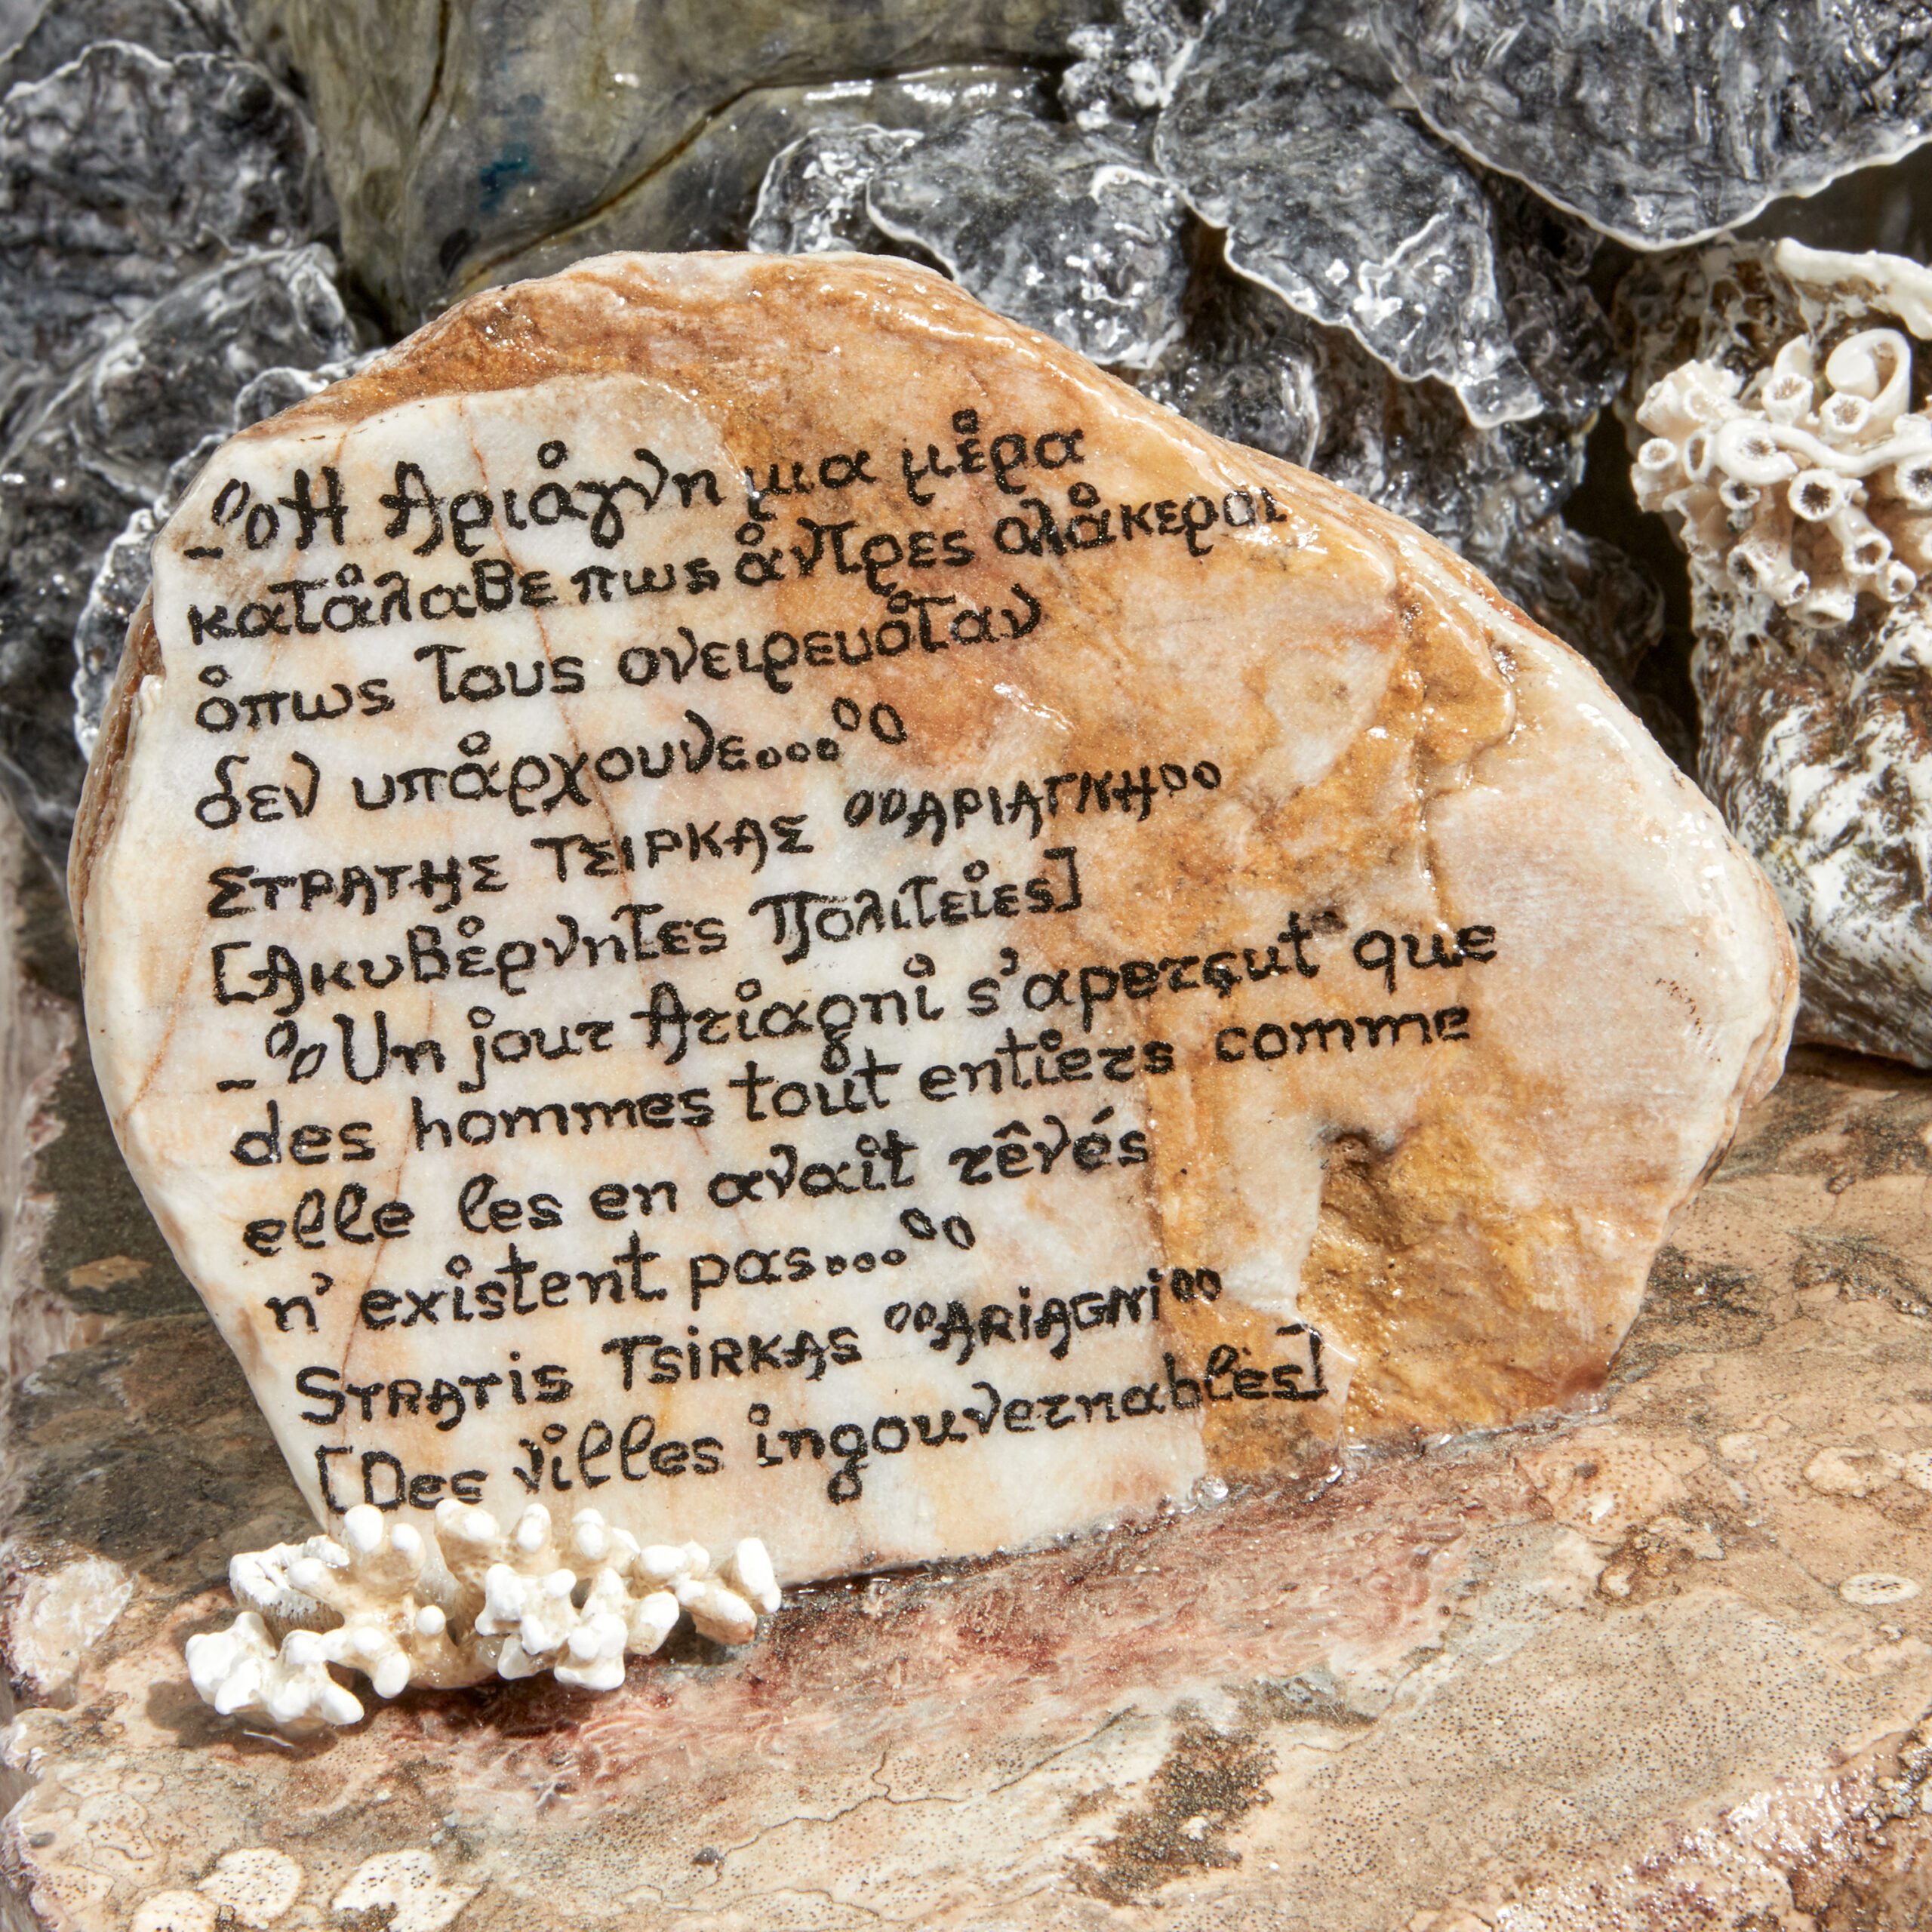 _"Η Αριάγνη μια μέρα
κατάλαβε πως άντρες ολάκεροι
όπως τους ονειρευόταν
δεν υπάρχουνε..."
ΣΤΡΑΤΗΣ ΤΣΙΡΚΑΣ "ΑΡΙΑΓΝΗ"
[Ακυβέρνητες Πολιτείες]
_"Un jour Ariagni s'aperçut que
des hommes tout entiers comme
elle les en avait rêvés
n'existent pas..."
STRATIS TSIRKAS "ARIAGNI"
[Des villes ingouvernables]